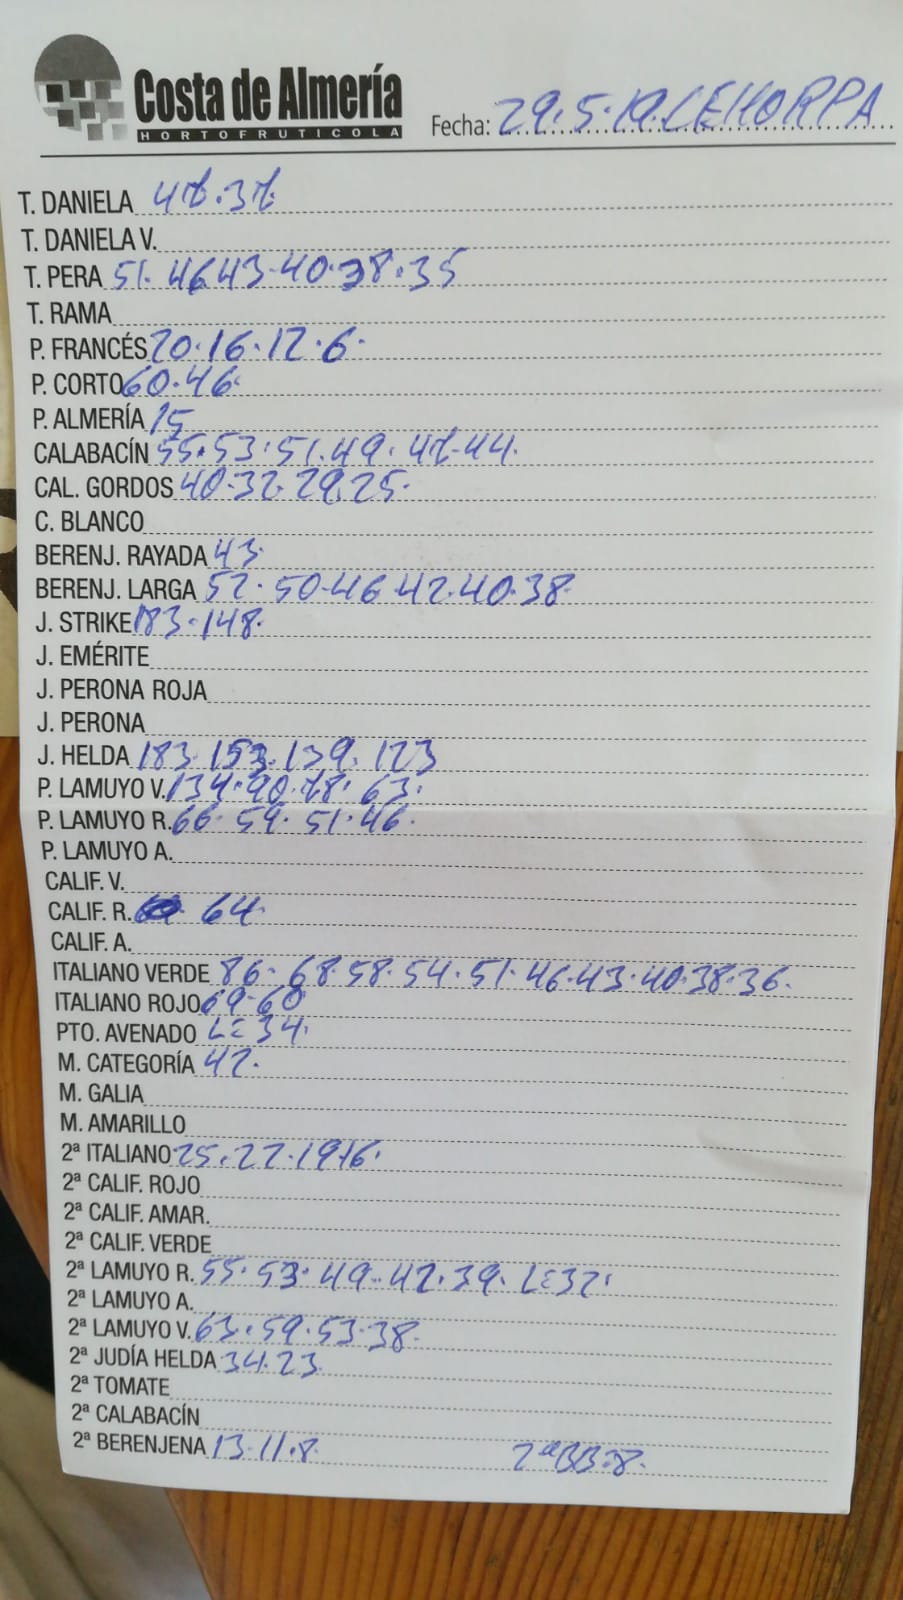 Costa de Almería
HORTOFRUTICOLA
Fecha: 29.5.19. CEHORPA
T. DANIELA 47.37
T. DANIELA V.
T. PERA 51.46 43.40.38.35
T. RAMA
P. FRANCÉS 20.16.12.6.
P. CORTO 60.46.
P. ALMERÍA 15
CALABACÍN 55.53.51.49.47.44.
CAL. GORDOS 40.32.29.25.
C. BLANCO
BERENJ. RAYADA 43.
BERENJ. LARGA 52.50.46.42.40.38
J. STRIKE 183.148.
J. EMÉRITE
J. PERONA ROJA
J. PERONA
J. HELDA 183.153.139.123
P. LAMUYO V. 134.90.78.63.
P. LAMUYO R. 66.59.51.46.
P. LAMUYO A.
CALIF. V.
CALIF. R. 64.
CALIF. A.
ITALIANO VERDE 86.68.58.54.51.46.43.40.38.36.
ITALIANO ROJO 69-60
PTO. AVENADO LE 34.
M. CATEGORÍA 42.
M. GALIA
M. AMARILLO
2ª ITALIANO 25.22.19 16.
2ª CALIF. ROJO
2ª CALIF. AMAR.
2ª CALIF. VERDE
2ª LAMUYO R. 55.53.49.42.39. LE 32.
2ª LAMUYO A.
2ª LAMUYO V. 63.59.53.38.
2ª JUDÍA HELDA 34.23
2ª TOMATE
2ª CALABACÍN
2ª BERENJENA 13.11.8. 2ªBB.8.